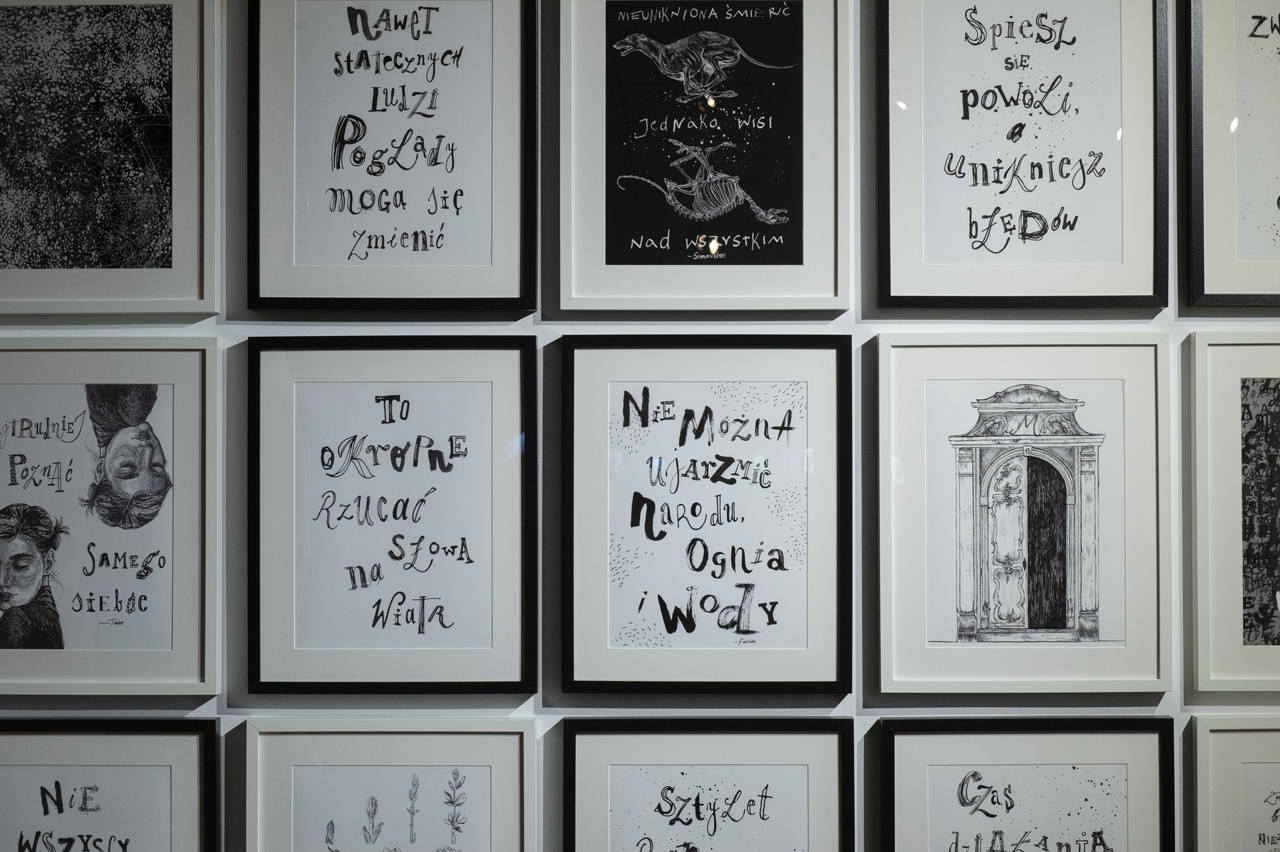 NaweT
stateczNych
Ludzi
Poglądy
moga się
zmienić
NIEUNIKNIONA ŚMIERĆ
Jednako wisi
Nad wszystkim
~Simonides
Spiesz
się
powoli,
a
unikniesz
błędów
ZW
Poznać
Samego
siebie
~Tales
To
okropne
Rzucać
słowa
na
wiatr
Nie
Można
ujarzmić
Narodu,
Ognia
i Wody
M
Nie
wszyscy
Sztylet
Czas
działania